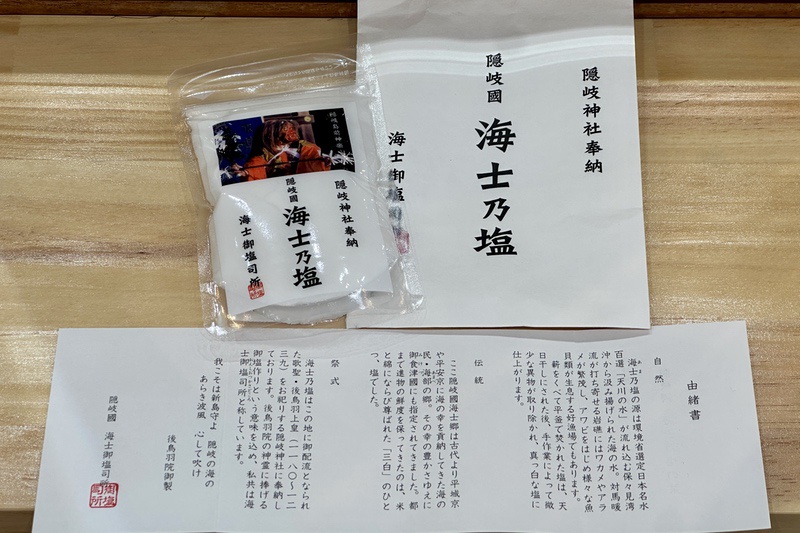 隠岐神社奉納
隠岐國
海士乃塩
海士御塩司所
隠岐島前神楽
隠岐神社奉納
隠岐國
海士乃塩
海士御塩司所
由緒書
自然
海士乃塩の源は環境省選定日本名水
百選「天川の水」が流れ込む保々見湾
沖から汲み揚げられた海の水。対馬暖
流が打ち寄せる岩礁にはワカメやアラ
メが繁茂し、アワビをはじめ様々な魚
貝類が生息する好漁場でもあります。
薪をくべて平釜で焚かれた塩は、天
日干しにされた後、手作業によって微
少な異物が取り除かれ、真っ白な塩に
仕上がります。
伝統
ここ隠岐國海士郷は古代より平城京
や平安京に海の幸を貢納してきた海の
民・海部の郷。その幸の豊かさゆえに
御食津國にも指定されてきました。都
まで進物の鮮度を保ってきたのは、米
と綿にならび尊ばれた「三白」のひと
つ、塩でした。
祭式
海士乃塩はこの地に御配流となられ
た歌聖・後鳥羽上皇（一一八〇～一二
三九）をお祀りする隠岐神社に奉納し
ております。後鳥羽院の神霊に捧げる
御塩作りという意味を込め、私共は海
士御塩司所と称しています。
我こそは新島守よ 隠岐の海の
あらき波風 心して吹け
後鳥羽院御製
隠岐國 海士御塩司所
御塩
司所